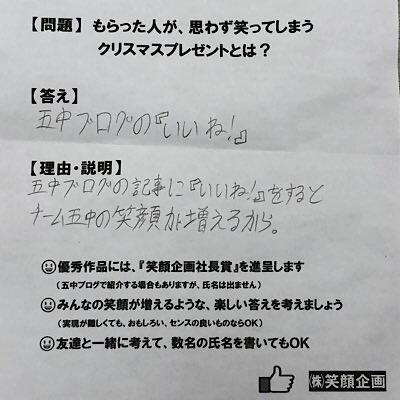 【問題】もらった人が、思わず笑ってしまう
クリスマスプレゼントとは？
【答え】
五中ブログの『いいね！』
【理由・説明】
五中ブログの記事に『いいね！』をすると
チーム五中の笑顔が増えるから。
優秀作品には、『笑顔企画社長賞』を進呈します
（五中ブログで紹介する場合もありますが、氏名は出ません）
みんなの笑顔が増えるような、楽しい答えを考えましょう
（実現が難しくても、おもしろい、センスの良いものならOK）
友達と一緒に考えて、数名の氏名を書いてもOK
㈱笑顔企画